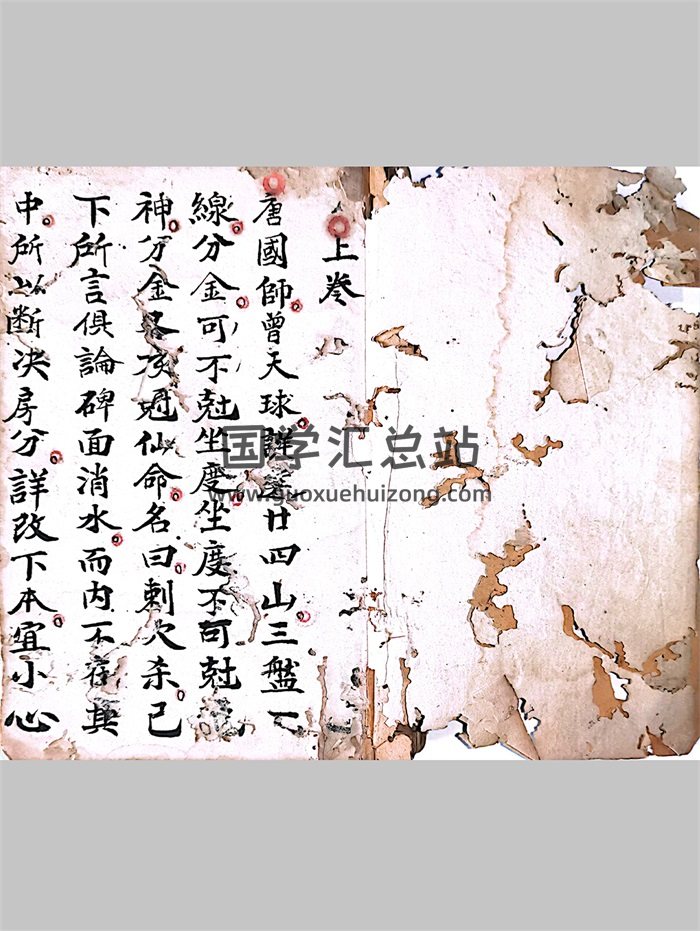 上卷
唐國師曾天球詳廿四山三盤一
線分金可不尅坐度坐度不可尅
神分金尅仙命名曰刺穴杀已
下所言俱論碑面消水而内不在其
中所以断决房分詳改下本宜小心
国学汇总站
www.guoxuehuizong.com